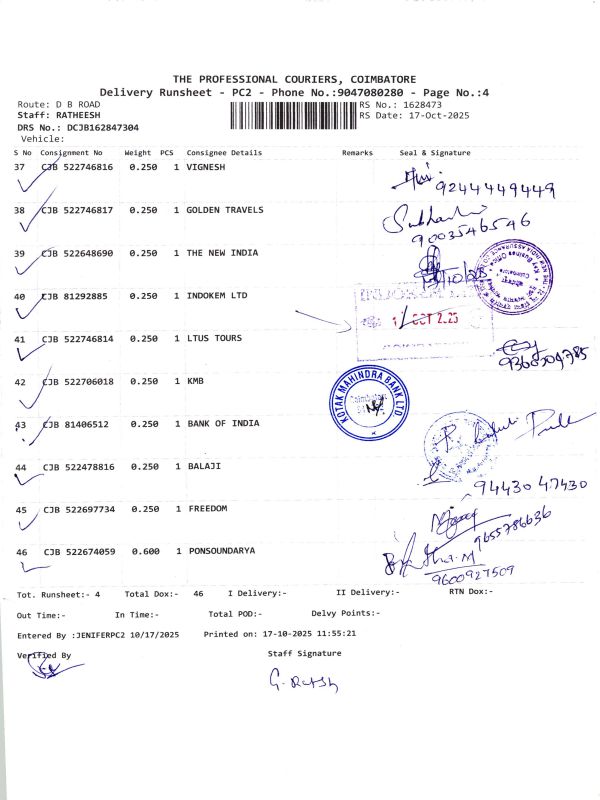 THE PROFESSIONAL COURIERS, COIMBATORE
Delivery Runsheet - PC2 - Phone No.:9047080280 - Page No.:4
Route: D B ROAD RS No.: 1628473
Staff: RATHEESH RS Date: 17-Oct-2025
DRS No.: DCJB162847304
Vehicle:
S No Consignment No Weight PCS Consignee Details Remarks Seal & Signature
37 CJB 522746816 0.250 1 VIGNESH
9244449449
38 CJB 522746817 0.250 1 GOLDEN TRAVELS
9003546546
39 CJB 522648690 0.250 1 THE NEW INDIA
40 CJB 81292885 0.250 1 INDOKEM LTD
OCT 2025
41 CJB 522746814 0.250 1 LTUS TOURS
9360504785
42 CJB 522706018 0.250 1 KMB
KOTAK MAHINDRA BANK LTD
43 CJB 81406512 0.250 1 BANK OF INDIA
44 CJB 522478816 0.250 1 BALAJI
94430 47430
45 CJB 522697734 0.250 1 FREEDOM
9655786636
46 CJB 522674059 0.600 1 PONSOUNDARYA
9600927509
Tot. Runsheet:- 4 Total Dox:- 46 I Delivery:- II Delivery:- RTN Dox:-
Out Time:- In Time:- Total POD:- Delvy Points:-
Entered By :JENIFERPC2 10/17/2025 Printed on: 17-10-2025 11:55:21
Verified By Staff Signature